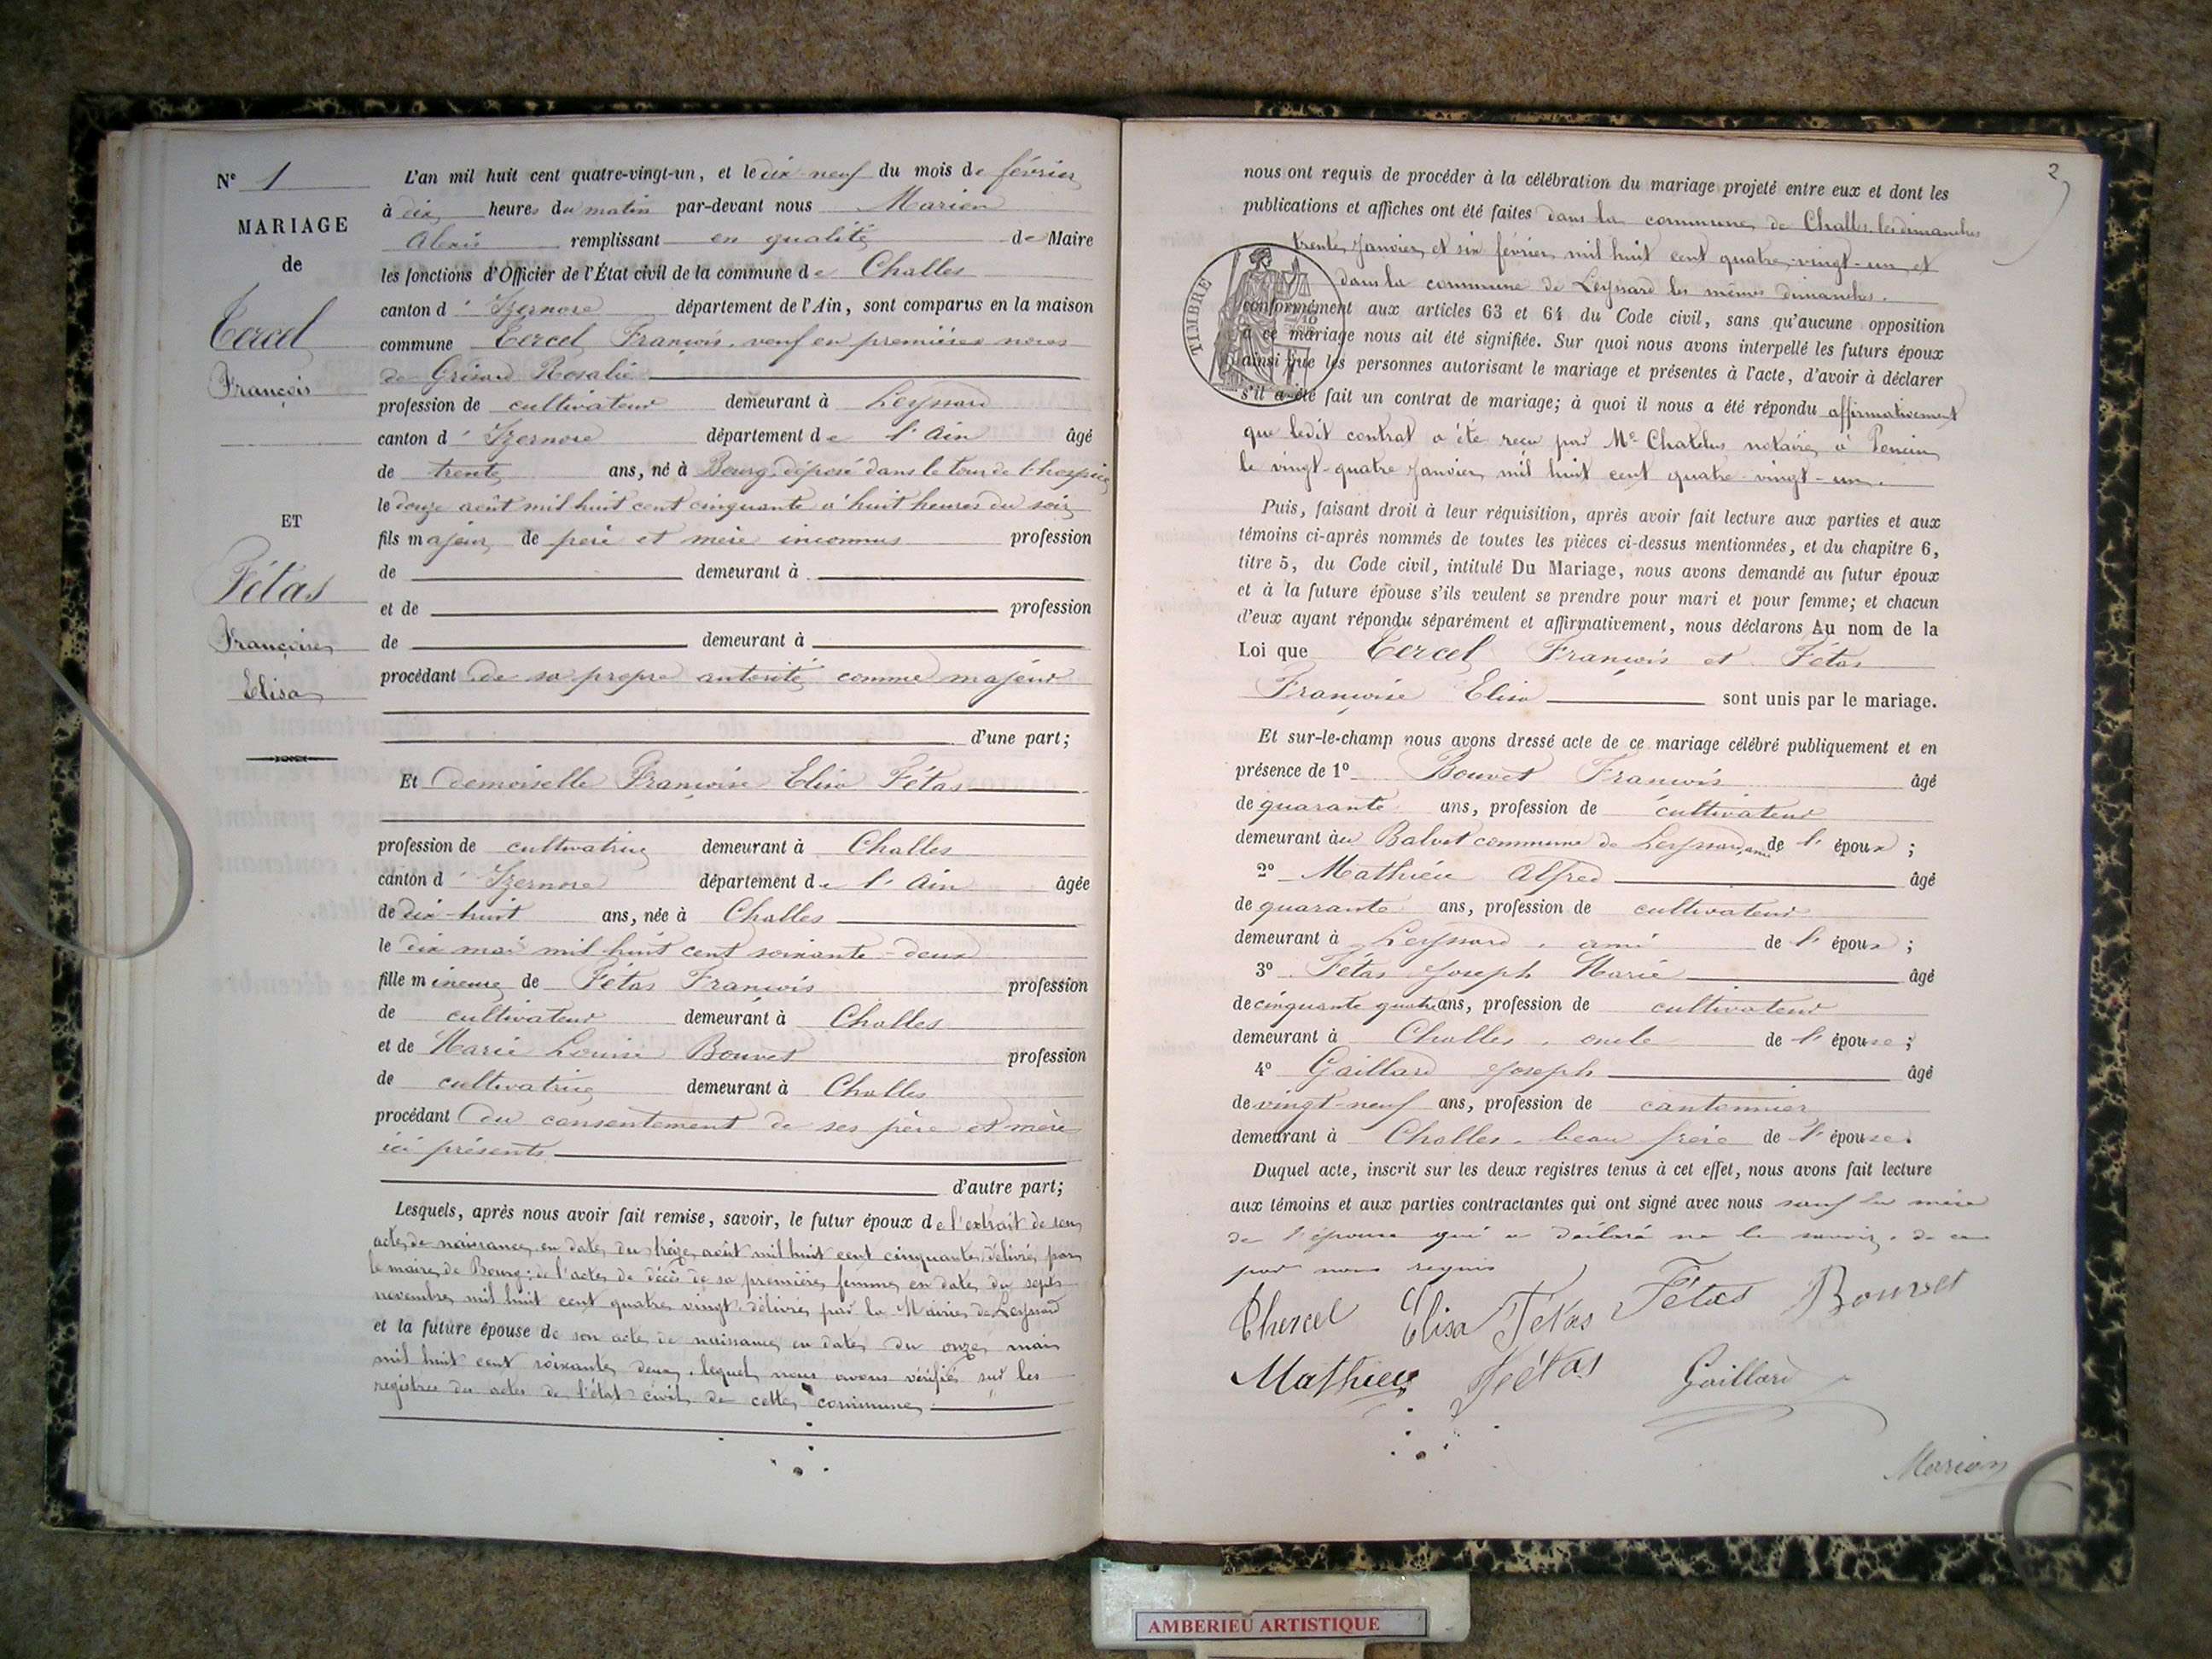 N° 1
MARIAGE
de
Tercel
François
ET
Fétas
Françoise
Elisa
L'an mil huit cent quatre-vingt-un, et le dix neuf du mois de février
à dix heures du matin par-devant nous Marion
Alexis remplissant en qualité de Maire
les fonctions d'Officier de l'État civil de la commune de Challes
canton d'Izernore département de l'Ain, sont comparus en la maison
commune Tercel François, veuf en premières noces
de Rosalie
profession de cultivateur demeurant à Leyssard
canton d'Izernore département de l'Ain âgé
de trente ans, né à Bourg, déposé dans le tour de l'hospice
le douze août mil huit cent cinquante à huit heures du soir
fils majeur de père et mère inconnus profession
de demeurant à
et de profession
de demeurant à
procédant de sa propre autorité comme majeur
d'une part;
Et demoiselle Françoise Elisa Fétas
profession de cultivatrice demeurant à Challes
canton d'Izernore département de l'Ain âgée
de dix-huit ans, née à Challes
le dix mai mil huit cent soixante-deux
fille mineure de Fétas François profession
de cultivateur demeurant à Challes
et de Marie Louise Bouvet profession
de cultivatrice demeurant à Challes
procédant du consentement de ses père et mère
ici présents
d'autre part;
Lesquels, après nous avoir fait remise, savoir, le futur époux de l'extrait de son
acte de naissance en date du treize août mil huit cent cinquante, délivré par
le maire de Bourg; de l'acte de décès de sa première femme en date du sept
novembre mil huit cent quatre vingt délivré par la Mairie de Leyssard
et la future épouse de son acte de naissance en date du onze mai
mil huit cent soixante deux, lequel nous avons vérifié sur les
registres des actes de l'état civil de cette commune.
2
nous ont requis de procéder à la célébration du mariage projeté entre eux et dont les
publications et affiches ont été faites dans la commune de Challes les dimanches
trente Janvier et six février mil huit cent quatre-vingt-un et
dans la commune de Leyssard les mêmes dimanches.
TIMBRE
conformément aux articles 63 et 64 du Code civil, sans qu'aucune opposition
à ce mariage nous ait été signifiée. Sur quoi nous avons interpellé les futurs époux
ainsi que les personnes autorisant le mariage et présentes à l'acte, d'avoir à déclarer
s'il a été fait un contrat de mariage; à quoi il nous a été répondu affirmativement
que ledit contrat a été reçu par Me Chatelus notaire à
le vingt-quatre Janvier mil huit cent quatre-vingt-un.
Puis, faisant droit à leur réquisition, après avoir fait lecture aux parties et aux
témoins ci-après nommés de toutes les pièces ci-dessus mentionnées, et du chapitre 6,
titre 5, du Code civil, intitulé Du Mariage, nous avons demandé au futur époux
et à la future épouse s'ils veulent se prendre pour mari et pour femme; et chacun
d'eux ayant répondu séparément et affirmativement, nous déclarons Au nom de la
Loi que Tercel François et Fétas
Françoise Elisa sont unis par le mariage.
Et sur-le-champ nous avons dressé acte de ce mariage célébré publiquement et en
présence de 1° Bouvet François âgé
de quarante ans, profession de cultivateur
demeurant au Balvet commune de Leyssard, ami de l'époux;
2° Mathieu Alfred âgé
de quarante ans, profession de cultivateur
demeurant à Leyssard, ami de l'époux;
3° Fétas Joseph Marie âgé
de cinquante quatre ans, profession de cultivateur
demeurant à Challes, oncle de l'épouse;
4° Gaillard Joseph âgé
de vingt-neuf ans, profession de cantonnier
demeurant à Challes, beau frère de l'épouse.
Duquel acte, inscrit sur les deux registres tenus à cet effet, nous avons fait lecture
aux témoins et aux parties contractantes qui ont signé avec nous sauf la mère
de l'épouse qui a déclaré ne le savoir, de ce
par nous requis
Thercel Elisa Fétas Fétas Bouvet
Mathieu Fétas Gaillard
Marion
AMBERIEU ARTISTIQUE